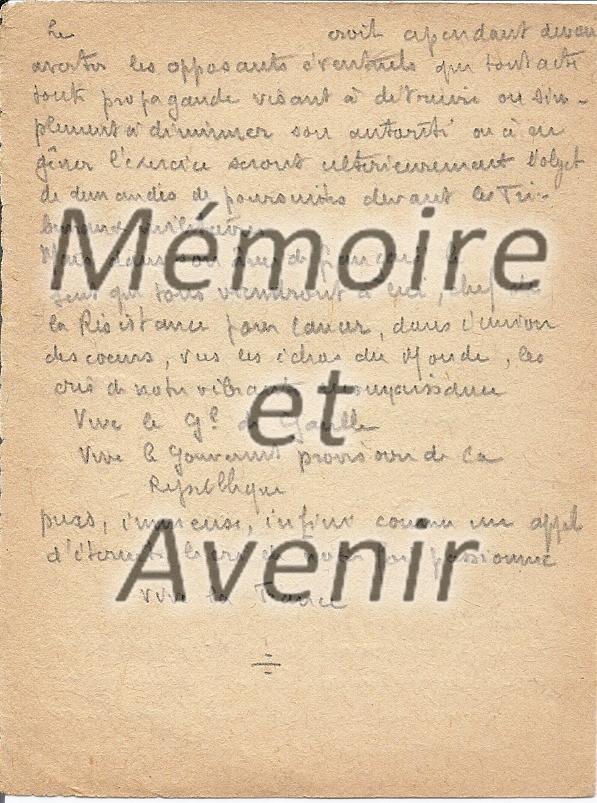 Le croit cependant devoir
avertir les opposants éventuels que tout acte
toute propagande visant à détruire ou sim-
plement à diminuer son autorité ou à en
gêner l'exercice seront ultérieurement l'objet
de demandes de poursuites devant les Tri-
bunaux militaires
Mémoire
qui tous viendront à lui, chef de
la Résistance pour lancer, dans l'union
des coeurs, vers les échos du Monde, les
cris de notre vibrante reconnaissance
et
Vive le Gl de Gaulle
Vive le Gouvernt provisoire de la
République
puis, immense, infini comme un appel
d'éternité le cri de notre foi passionnée
Avenir
Vive la France